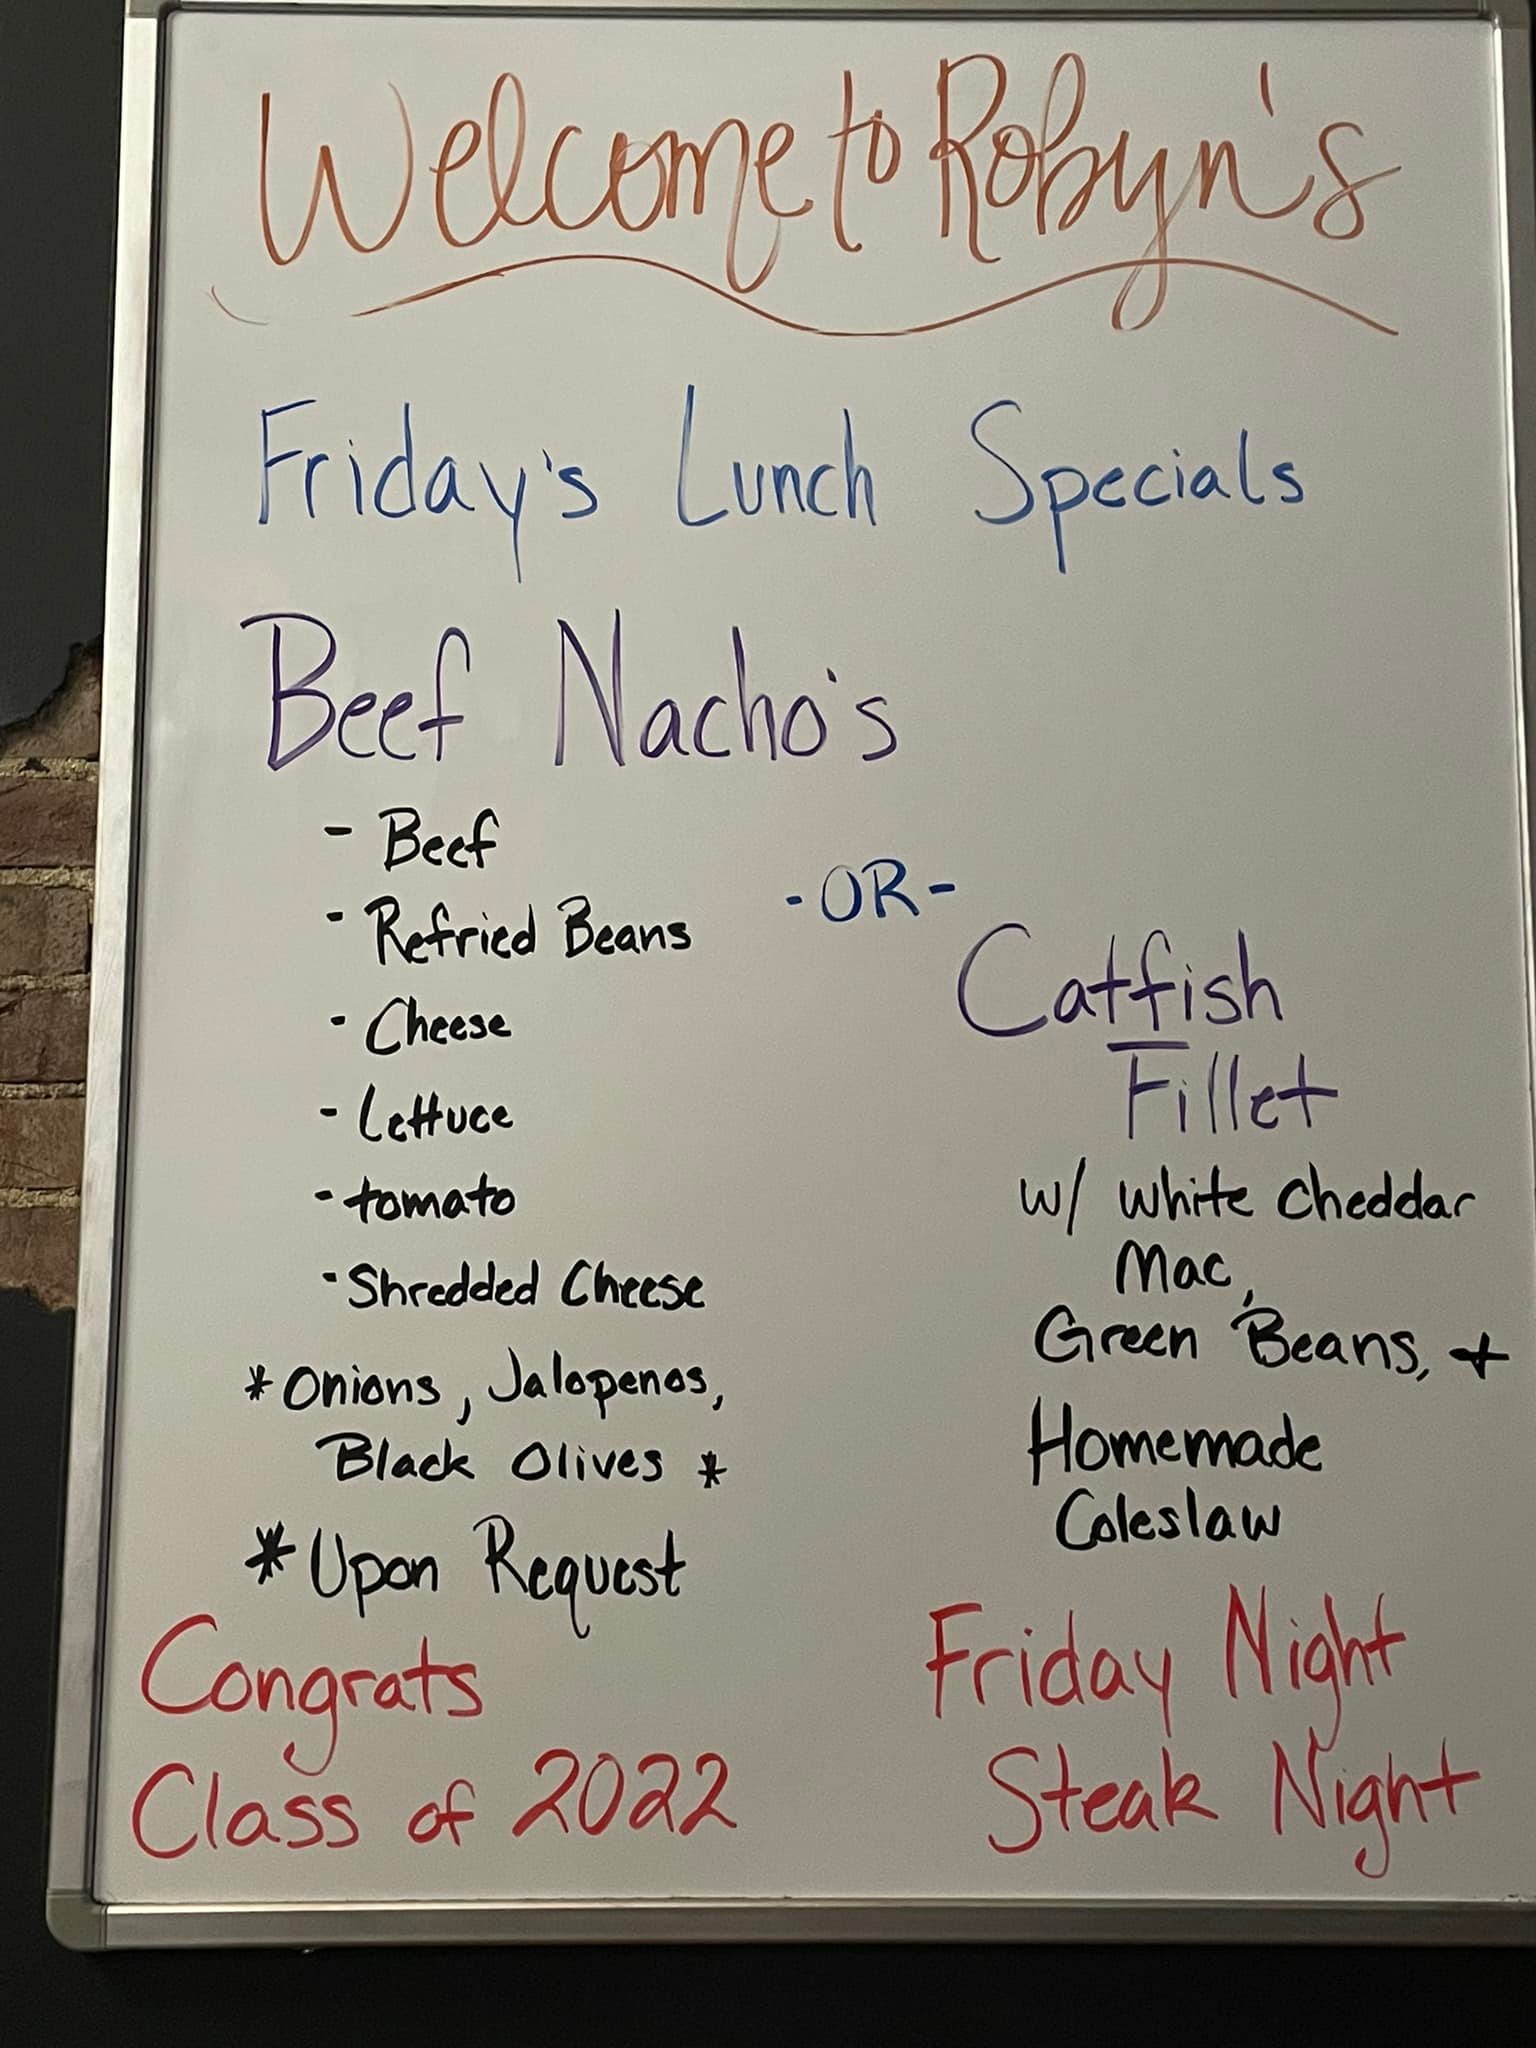 Welcome to Robyn's
Friday's Lunch Specials
Beef Nacho's
- Beef
- Refried Beans
- Cheese
- Lettuce
- tomato
- Shredded Cheese
* Onions, Jalapenos,
Black Olives *
* Upon Request
- OR -
Catfish
Fillet
w/ White Cheddar
Mac,
Green Beans, +
Homemade
Coleslaw
Congrats
Class of 2022
Friday Night
Steak Night